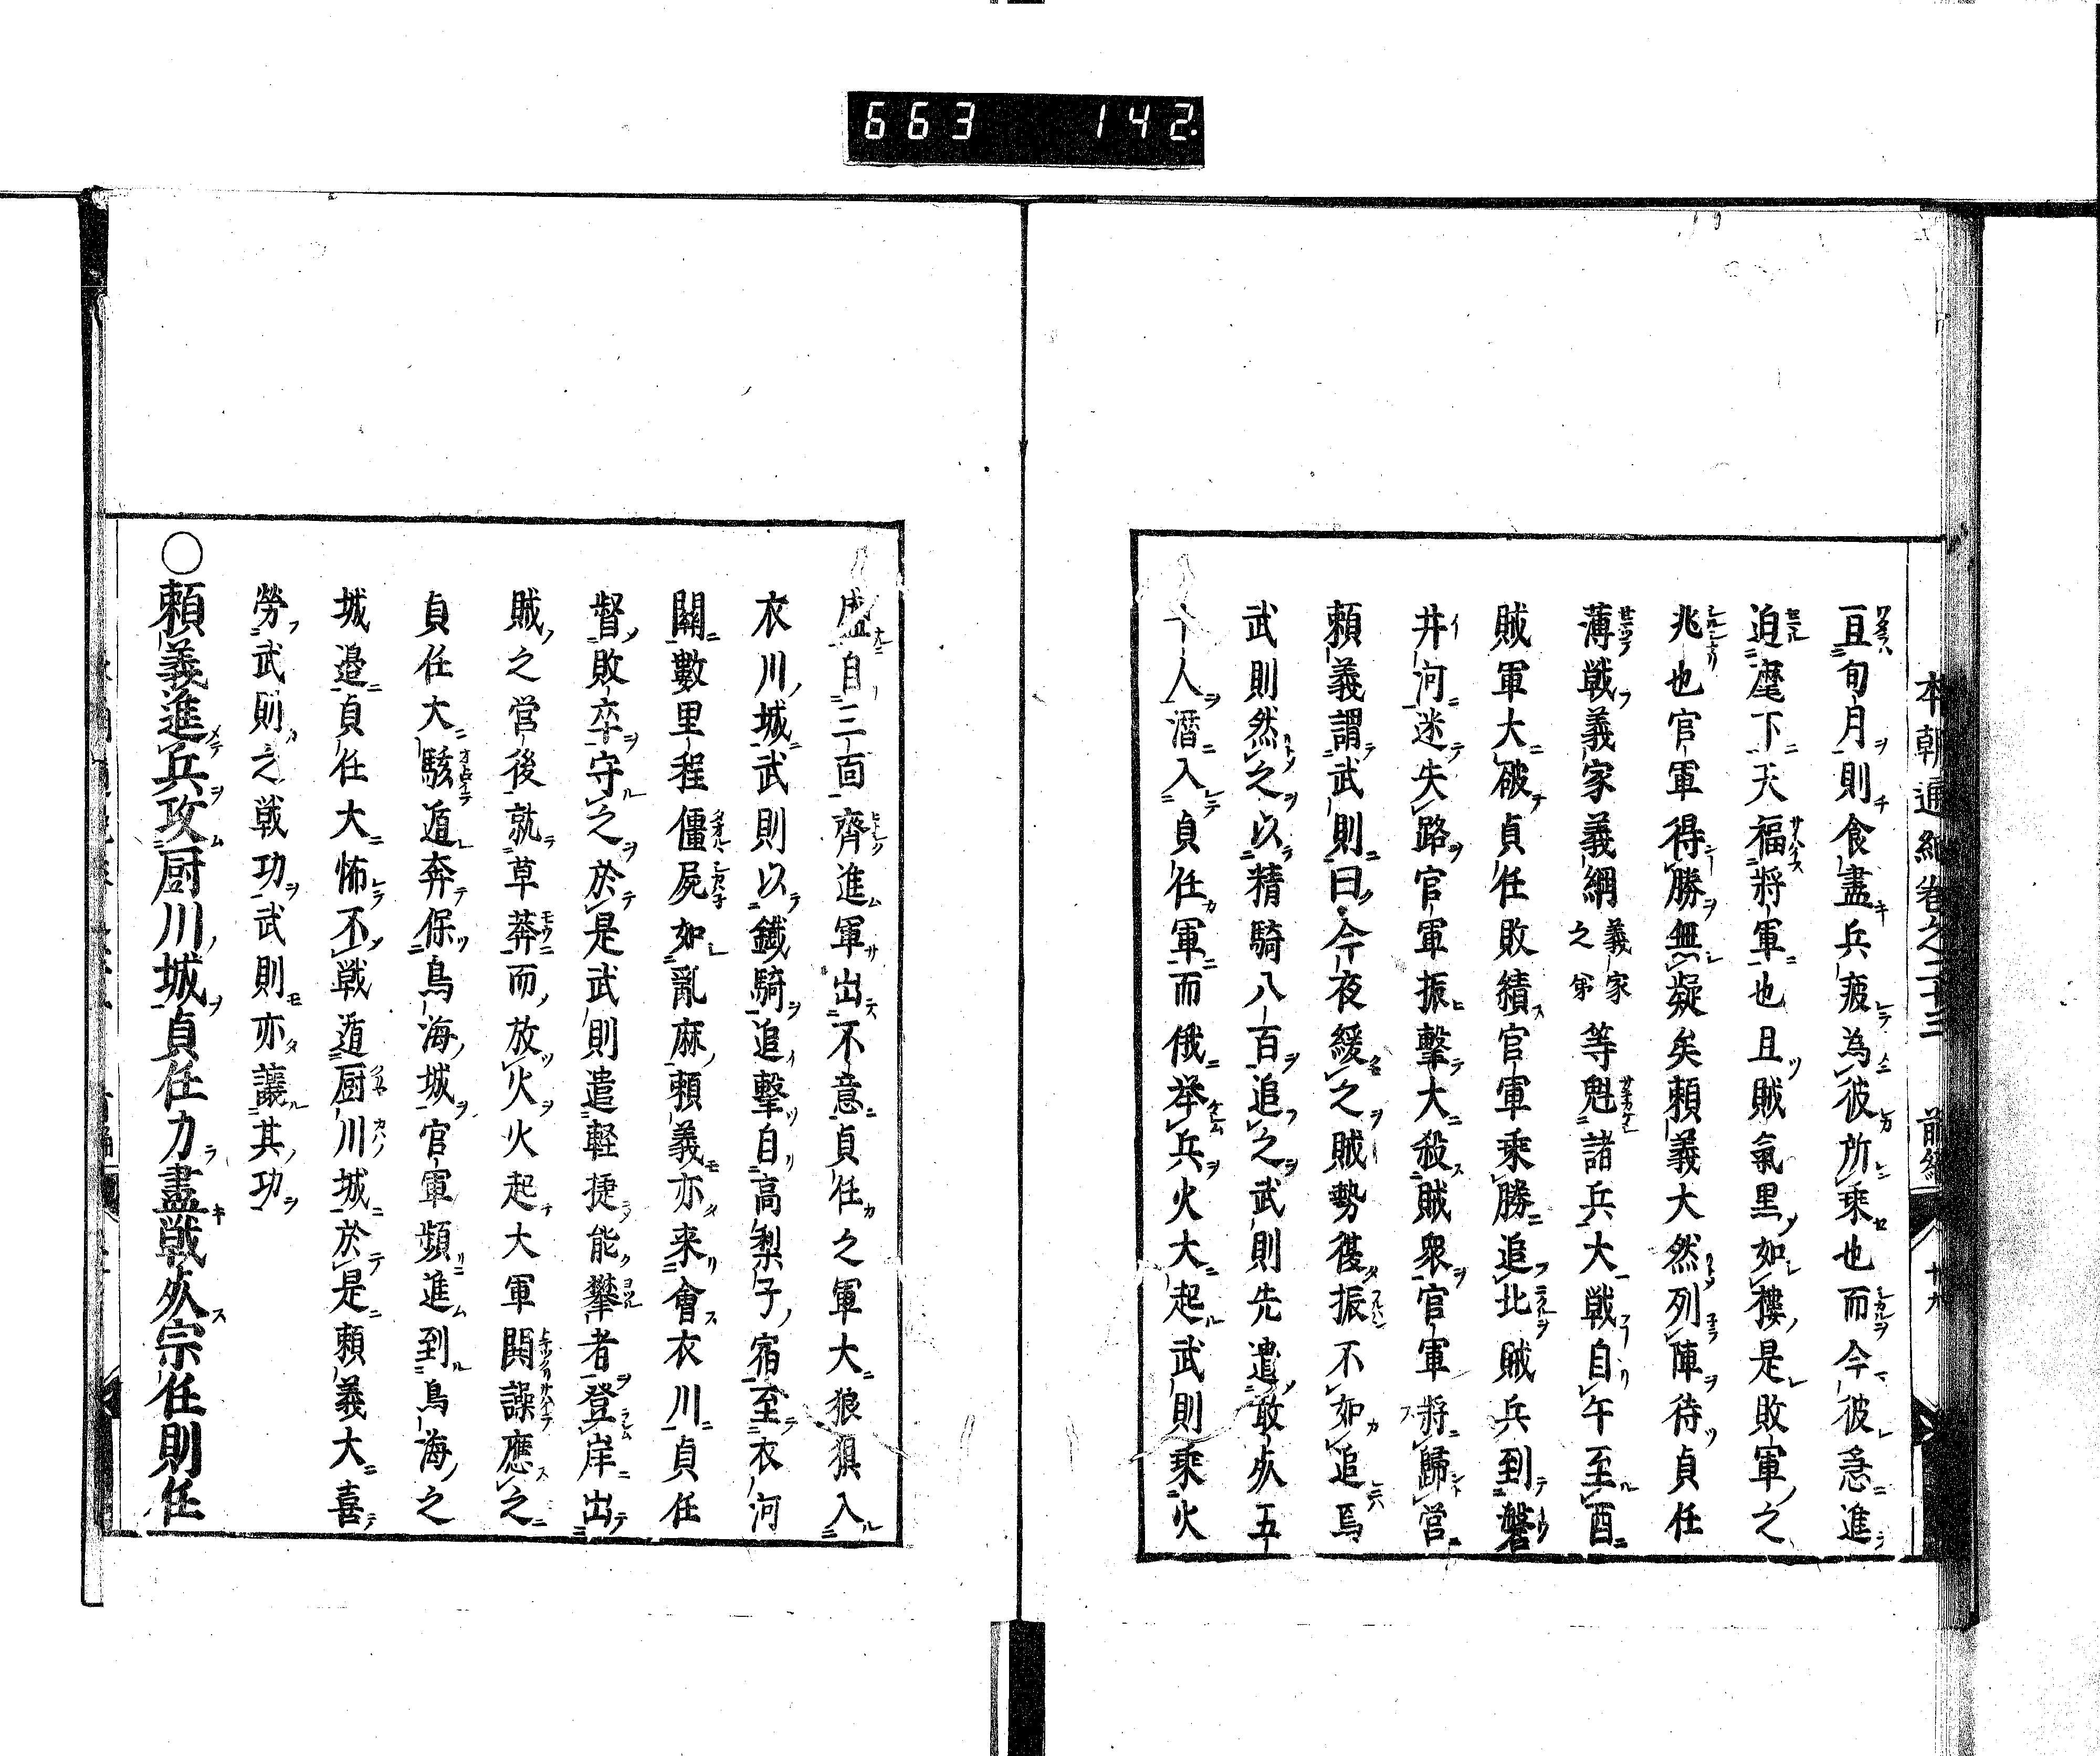 663 142.
本朝通紀卷之二十三 前編 十九
亘旬月則食盡兵疲為彼所乘也而今彼急進
迫麾下天福將軍也且賊氣黒如樓是敗軍之
兆也官軍得勝無疑矣頼義大然列陣待貞任
薄戦義家義綱義家之弟等魁諸兵大戦自午至酉
賊軍大破貞任敗績官軍乘勝追北賊兵到磐
井河迷失路官軍振撃大殺賊衆官軍將歸営
頼義謂武則曰今夜緩之賊勢復振不如追焉
武則然之以精騎八百追之武則先遣敢死五
十人潛入貞任軍而俄挙兵火大起武則乘火
盛自三面齊進軍出不意貞任之軍大狼狽入
衣川城武則以鐵騎追撃自高梨子宿至衣河
關數里程僵屍如亂麻頼義亦来會衣川貞任
督敗卒守之於是武則遣軽捷能攀者登岸出
賊之営後就草莽而放火火起大軍鬨譟應之
貞任大駭遁奔保鳥海城官軍頻進到鳥海之
城邉貞任大怖不戦遁厨川城於是頼義大喜
勞武則之戦功武則亦讓其功
〇頼義進兵攻厨川城貞任力盡戦死宗任則任